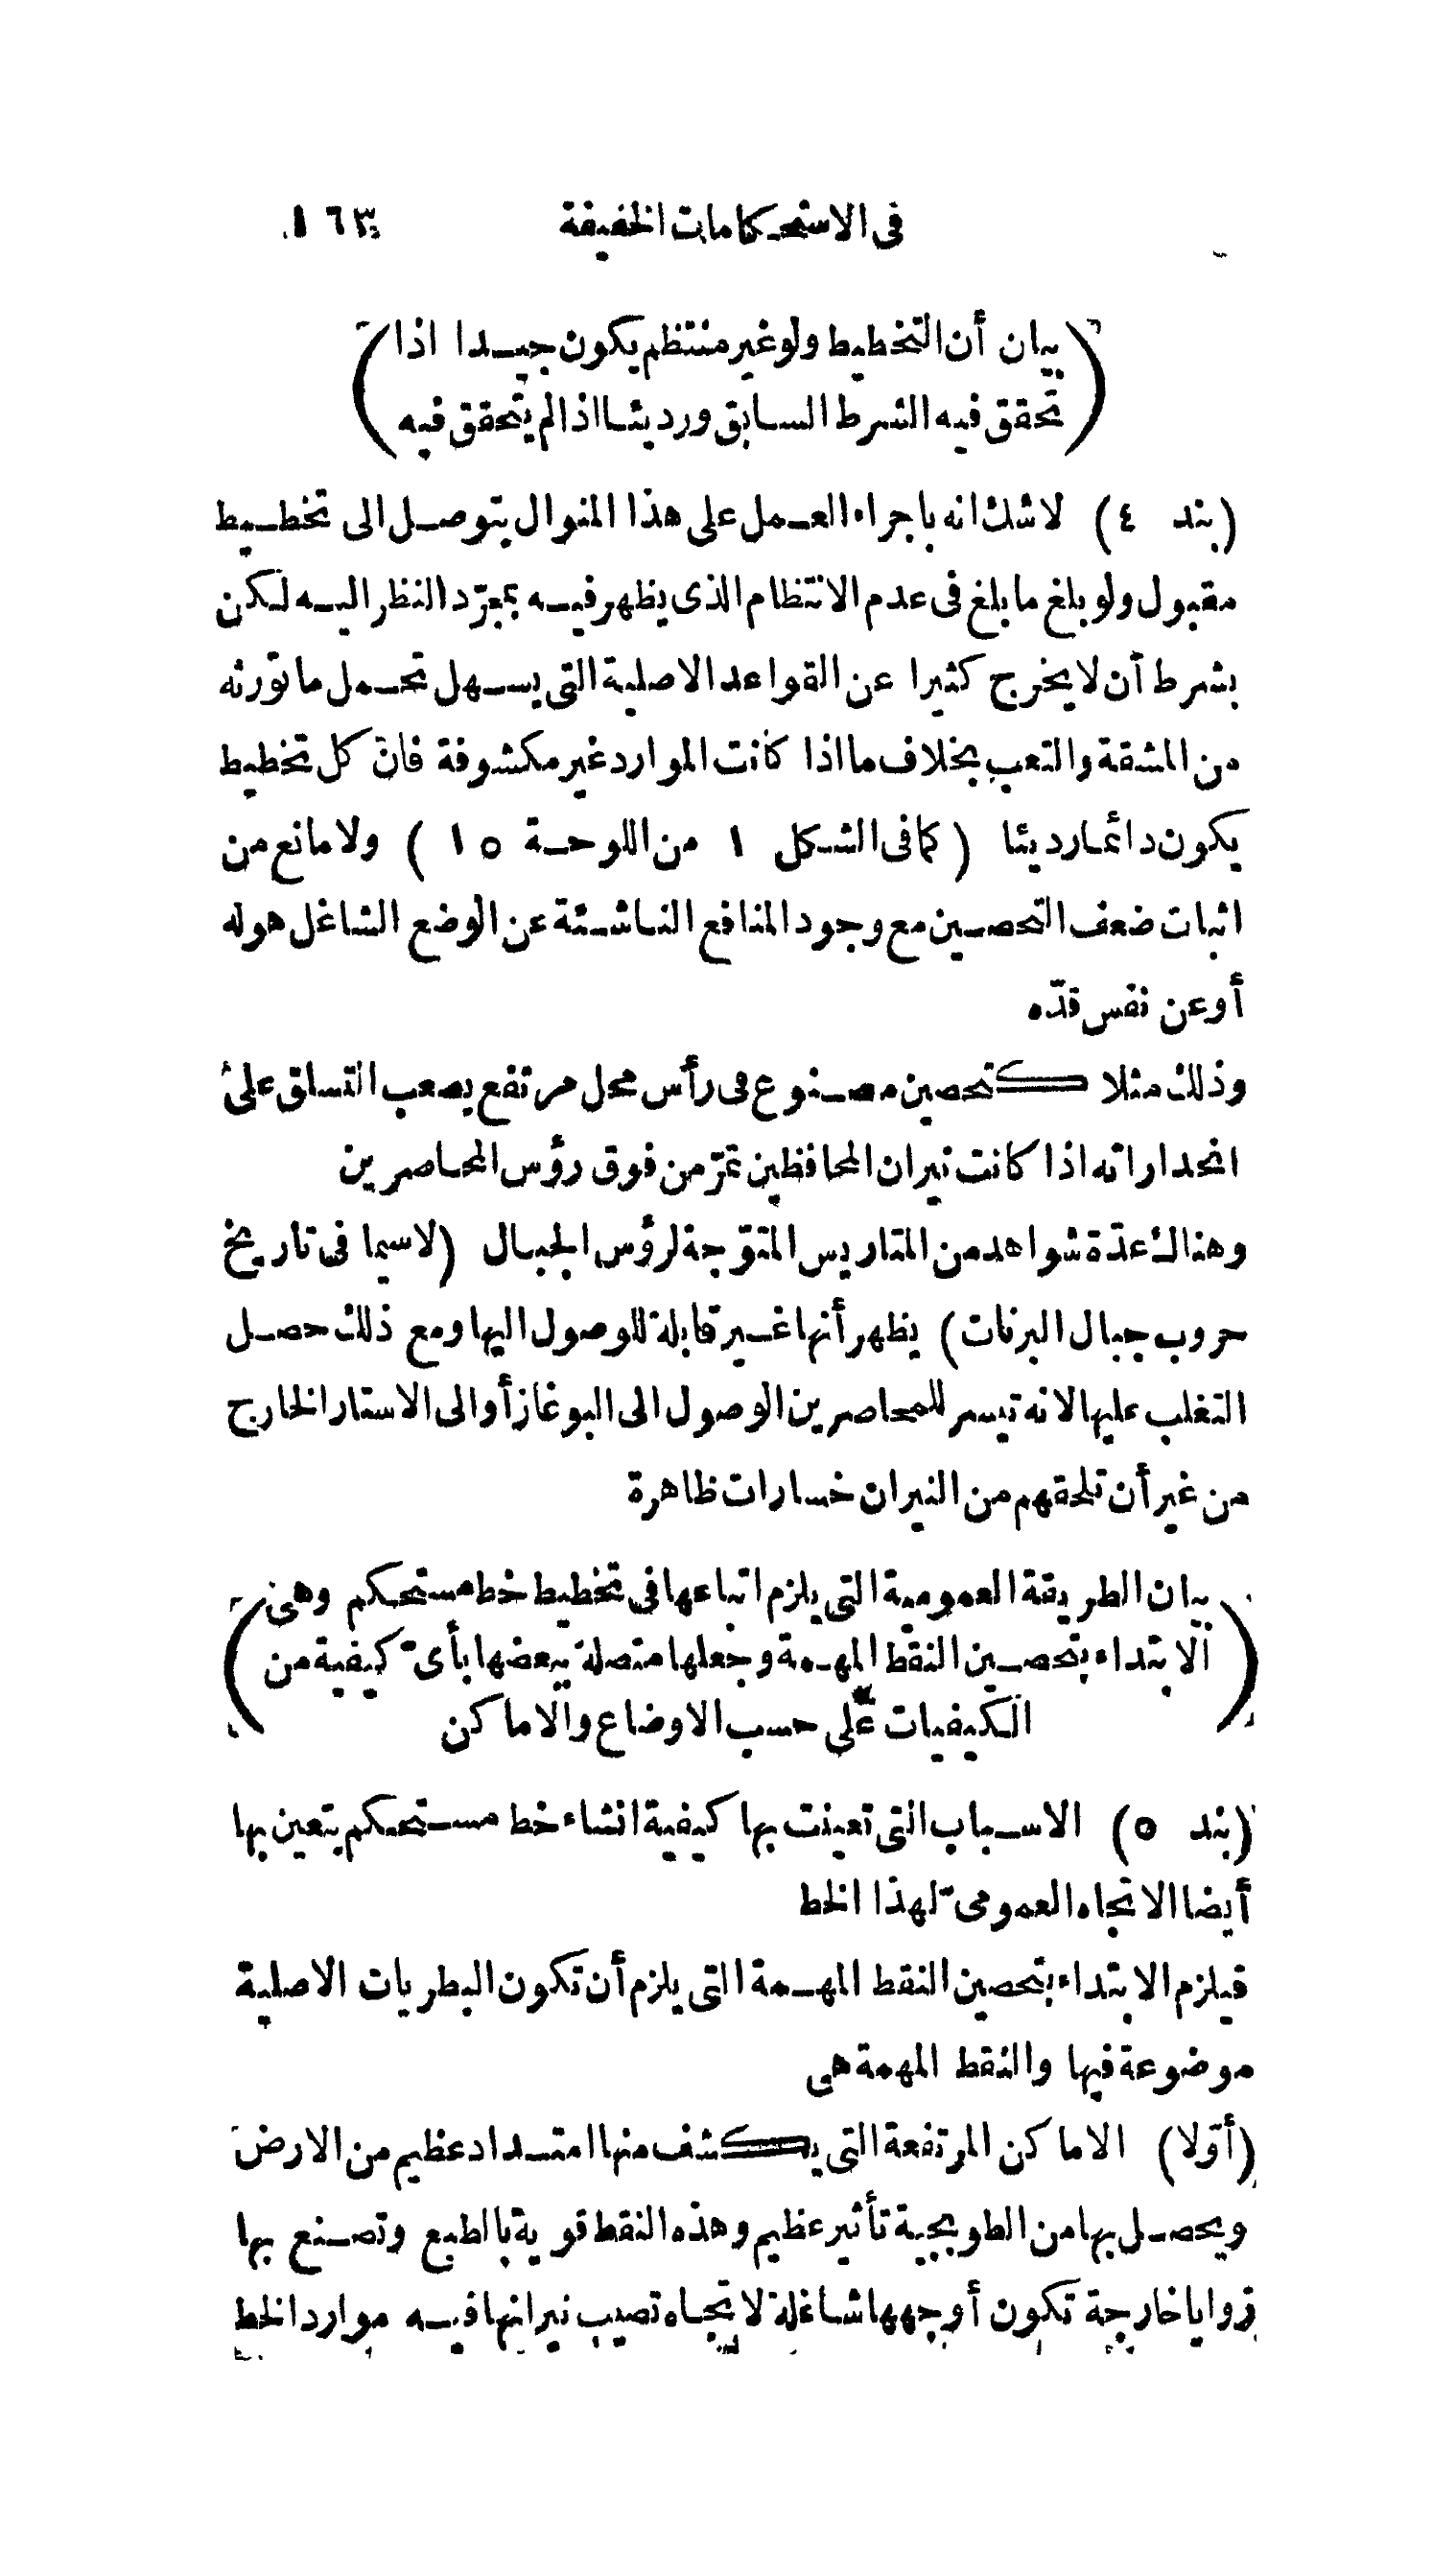 فى الاستحكامات الخفيفة ١٦٣
(بيان أن التخطيط ولو غير منتظم يكون جيدا اذا
تحقق فيه الشرط السابق ورديئا اذا لم يتحقق فيه)
(بند ٤) لاشك انه باجراء العمل على هذا المنوال يتوصل الى تخطيط
مقبول ولو بلغ ما بلغ فى عدم الانتظام الذى يظهر فيه بمجرّد النظر اليه لكن
بشرط أن لا يخرج كثيرا عن القواعد الاصلية التى يسهل تحمل ما تورثه
من المشقة والتعب بخلاف ما اذا كانت الموارد غير مكشوفة فانّ كل تخطيط
يكون دائما رديئا (كما فى الشكل ١ من اللوحة ١٥) ولا مانع من
اثبات ضعف التحصين مع وجود المنافع الناشئة عن الوضع الشاغل هوله
أو عن نفس قدّه
وذلك مثلا كتحصين مصنوع فى رأس محل مرتفع يصعب التسلق على
انحداراته اذا كانت نيران المحافظين تمرّ من فوق رؤس المحاصرين
وهناك عدّة شواهد من المتاريس المتوّجة لرؤس الجبال (لاسيما فى تاريخ
حروب جبال البرنات) يظهر أنها غير قابلة للوصول اليها ومع ذلك حصل
التغلب عليها لانه تيسر للمحاصرين الوصول الى البوغاز أو الى الاستار الخارج
من غير أن تلحقهم من النيران خسارات ظاهرة
(بيان الطريقة العمومية التى يلزم اتباعها فى تخطيط خط مستحكم وهى
الابتداء بتحصين النقط المهمة وجعلها متصلة ببعضها بأىّ كيفية من
الكيفيات على حسب الاوضاع والاماكن)
(بند ٥) الاسباب التى تعينت بها كيفية انشاء خط مستحكم يتعين بها
أيضا الاتجاه العمومىّ لهذا الخط
فيلزم الابتداء بتحصين النقط المهمة التى يلزم أن تكون البطريات الاصلية
موضوعة فيها والنقط المهمة هى
(أوّلا) الاماكن المرتفعة التى يكشف منها امتداد عظيم من الارض
ويحصل بها من الطوبجية تأثير عظيم وهذه النقط قوية بالطبع وتصنع بها
زوايا خارجة تكون أوجهها شاغلة لاتجاه تصيب نيرانها فيه موارد الخط